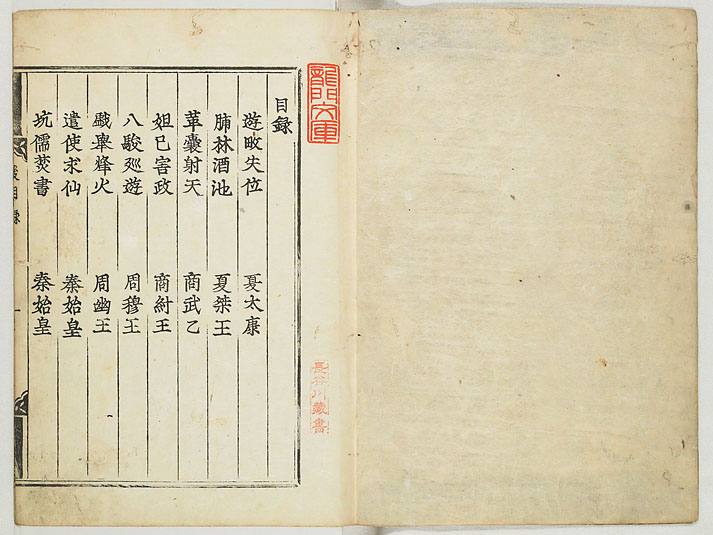 龍門文庫
長谷川蔵書
目録
遊畋失位 夏太康
脯林酒池 夏桀王
革囊射天 商武乙
妲己害政 商紂王
八駿廵遊 周穆王
戱舉烽火 周幽王
遣使求仙 秦始皇
坑儒焚書 秦始皇
目錄